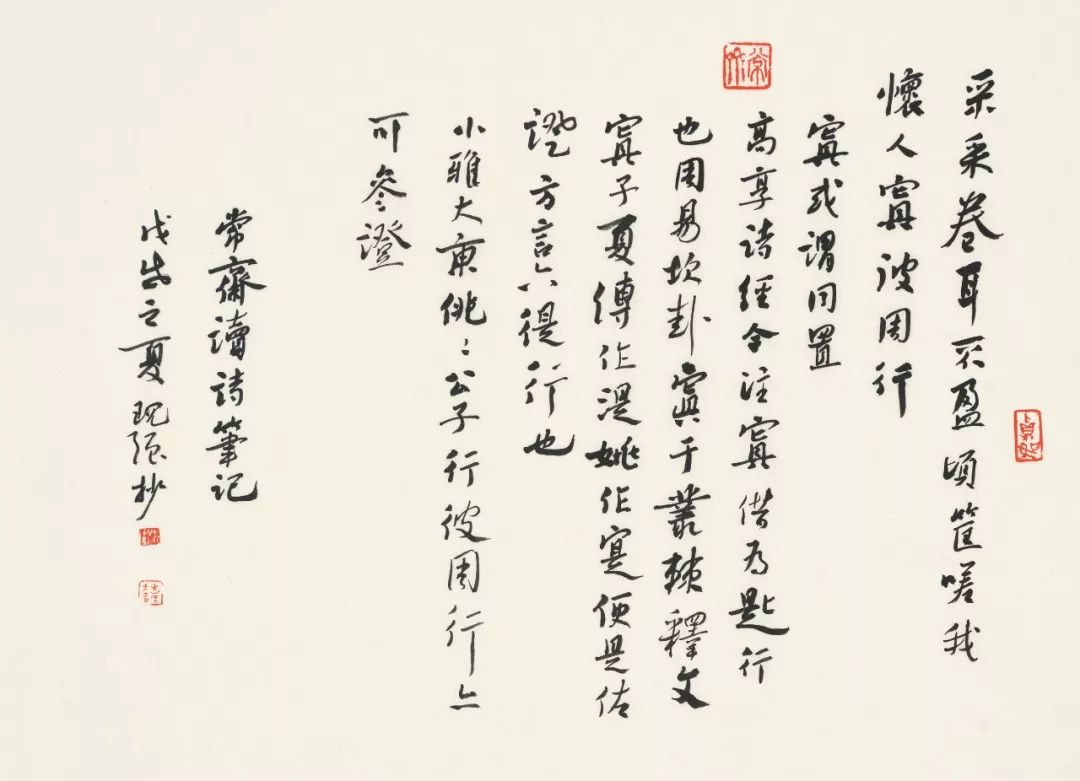 采采卷耳不盈頃筐嗟我
懷人寘彼周行
寘或謂同置
高享詩經今注寘借为匙行
也周易坎卦寘于叢棘釋文
寘子夏傳作湜姚作寔便是佐
證方言六徥行也
小雅大東佻〻公子行彼周行亦
可參證
常齋讀詩筆記
戊戌之夏现强抄